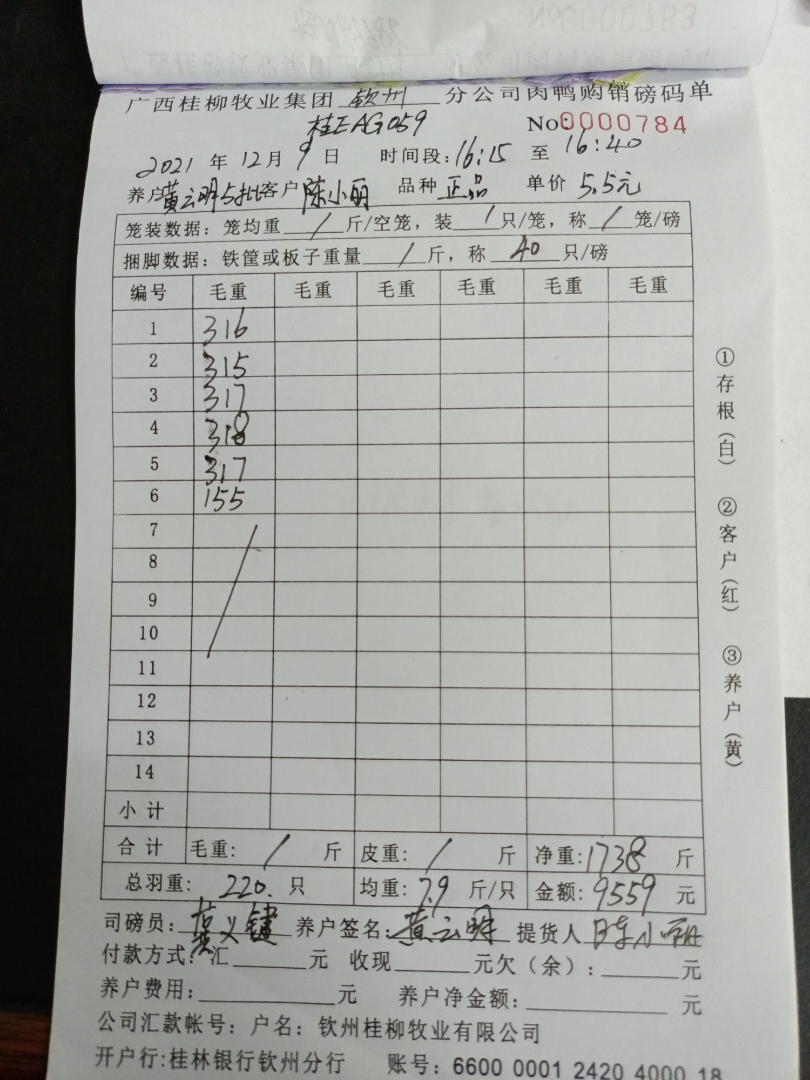 广西桂柳牧业集团 钦州 分公司肉鸭购销磅码单
桂EAG059 No:0000784
2021 年 12 月 9 日 时间段: 16:15 至 16:40
养户 黄云明5批 客户 陈小丽 品种 正品 单价 5.5元
笼装数据: 笼均重 / 斤/空笼, 装 / 只/笼, 称 / 笼/磅
捆脚数据: 铁筐或板子重量 / 斤, 称 40 只/磅
编号 毛重 毛重 毛重 毛重 毛重 毛重
1 316
2 315
3 317
4 318
5 317
6 155
7
8
9
10
11
12
13
14
小计
合计 毛重: / 斤 皮重: / 斤 净重: 1738 斤
总羽重: 220. 只 均重: 7.9 斤/只 金额: 9559 元
司磅员: 义键 养户签名: 黄云明 提货人 陈小丽
付款方式: 汇 元 收现 元欠(余): 元
养户费用: 元 养户净金额: 元
公司汇款帐号: 户名: 钦州桂柳牧业有限公司
开户行:桂林银行钦州分行 账号: 6600 0001 2420 4000 18
①存根(白) ②客户(红) ③养户(黄)